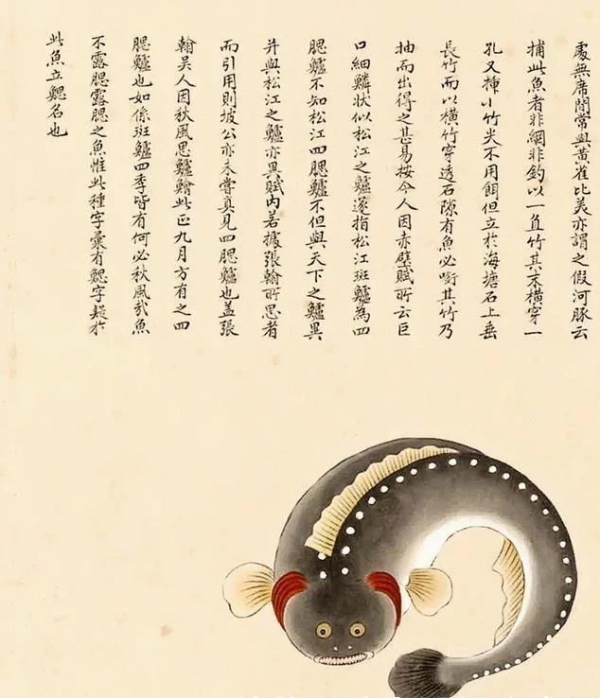 處無席間常與黃雀比美亦謂之假河豚云
捕此魚者非網非釣以一直竹其末橫穿一
孔又揷小竹尖不用餌但立於海塘石上垂
長竹而以橫竹穿透石隙有魚必啣其竹乃
抽而出得之甚易按今人因赤壁賦所云巨
口細鱗狀似松江之鱸遂指松江班鱸為四
腮鱸不知松江四腮鱸不但與天下之鱸異
并與松江之鱸亦異賦內若據張翰所思者
而引用則坡公亦未嘗真見四腮鱸也盖張
翰吳人因秋風思鱸鱠此正九月方有之四
腮鱸也如係班鱸四季皆有何必秋風哉魚
不露腮露腮之魚惟此種字彙有鰓字疑於
此魚立鰓名也